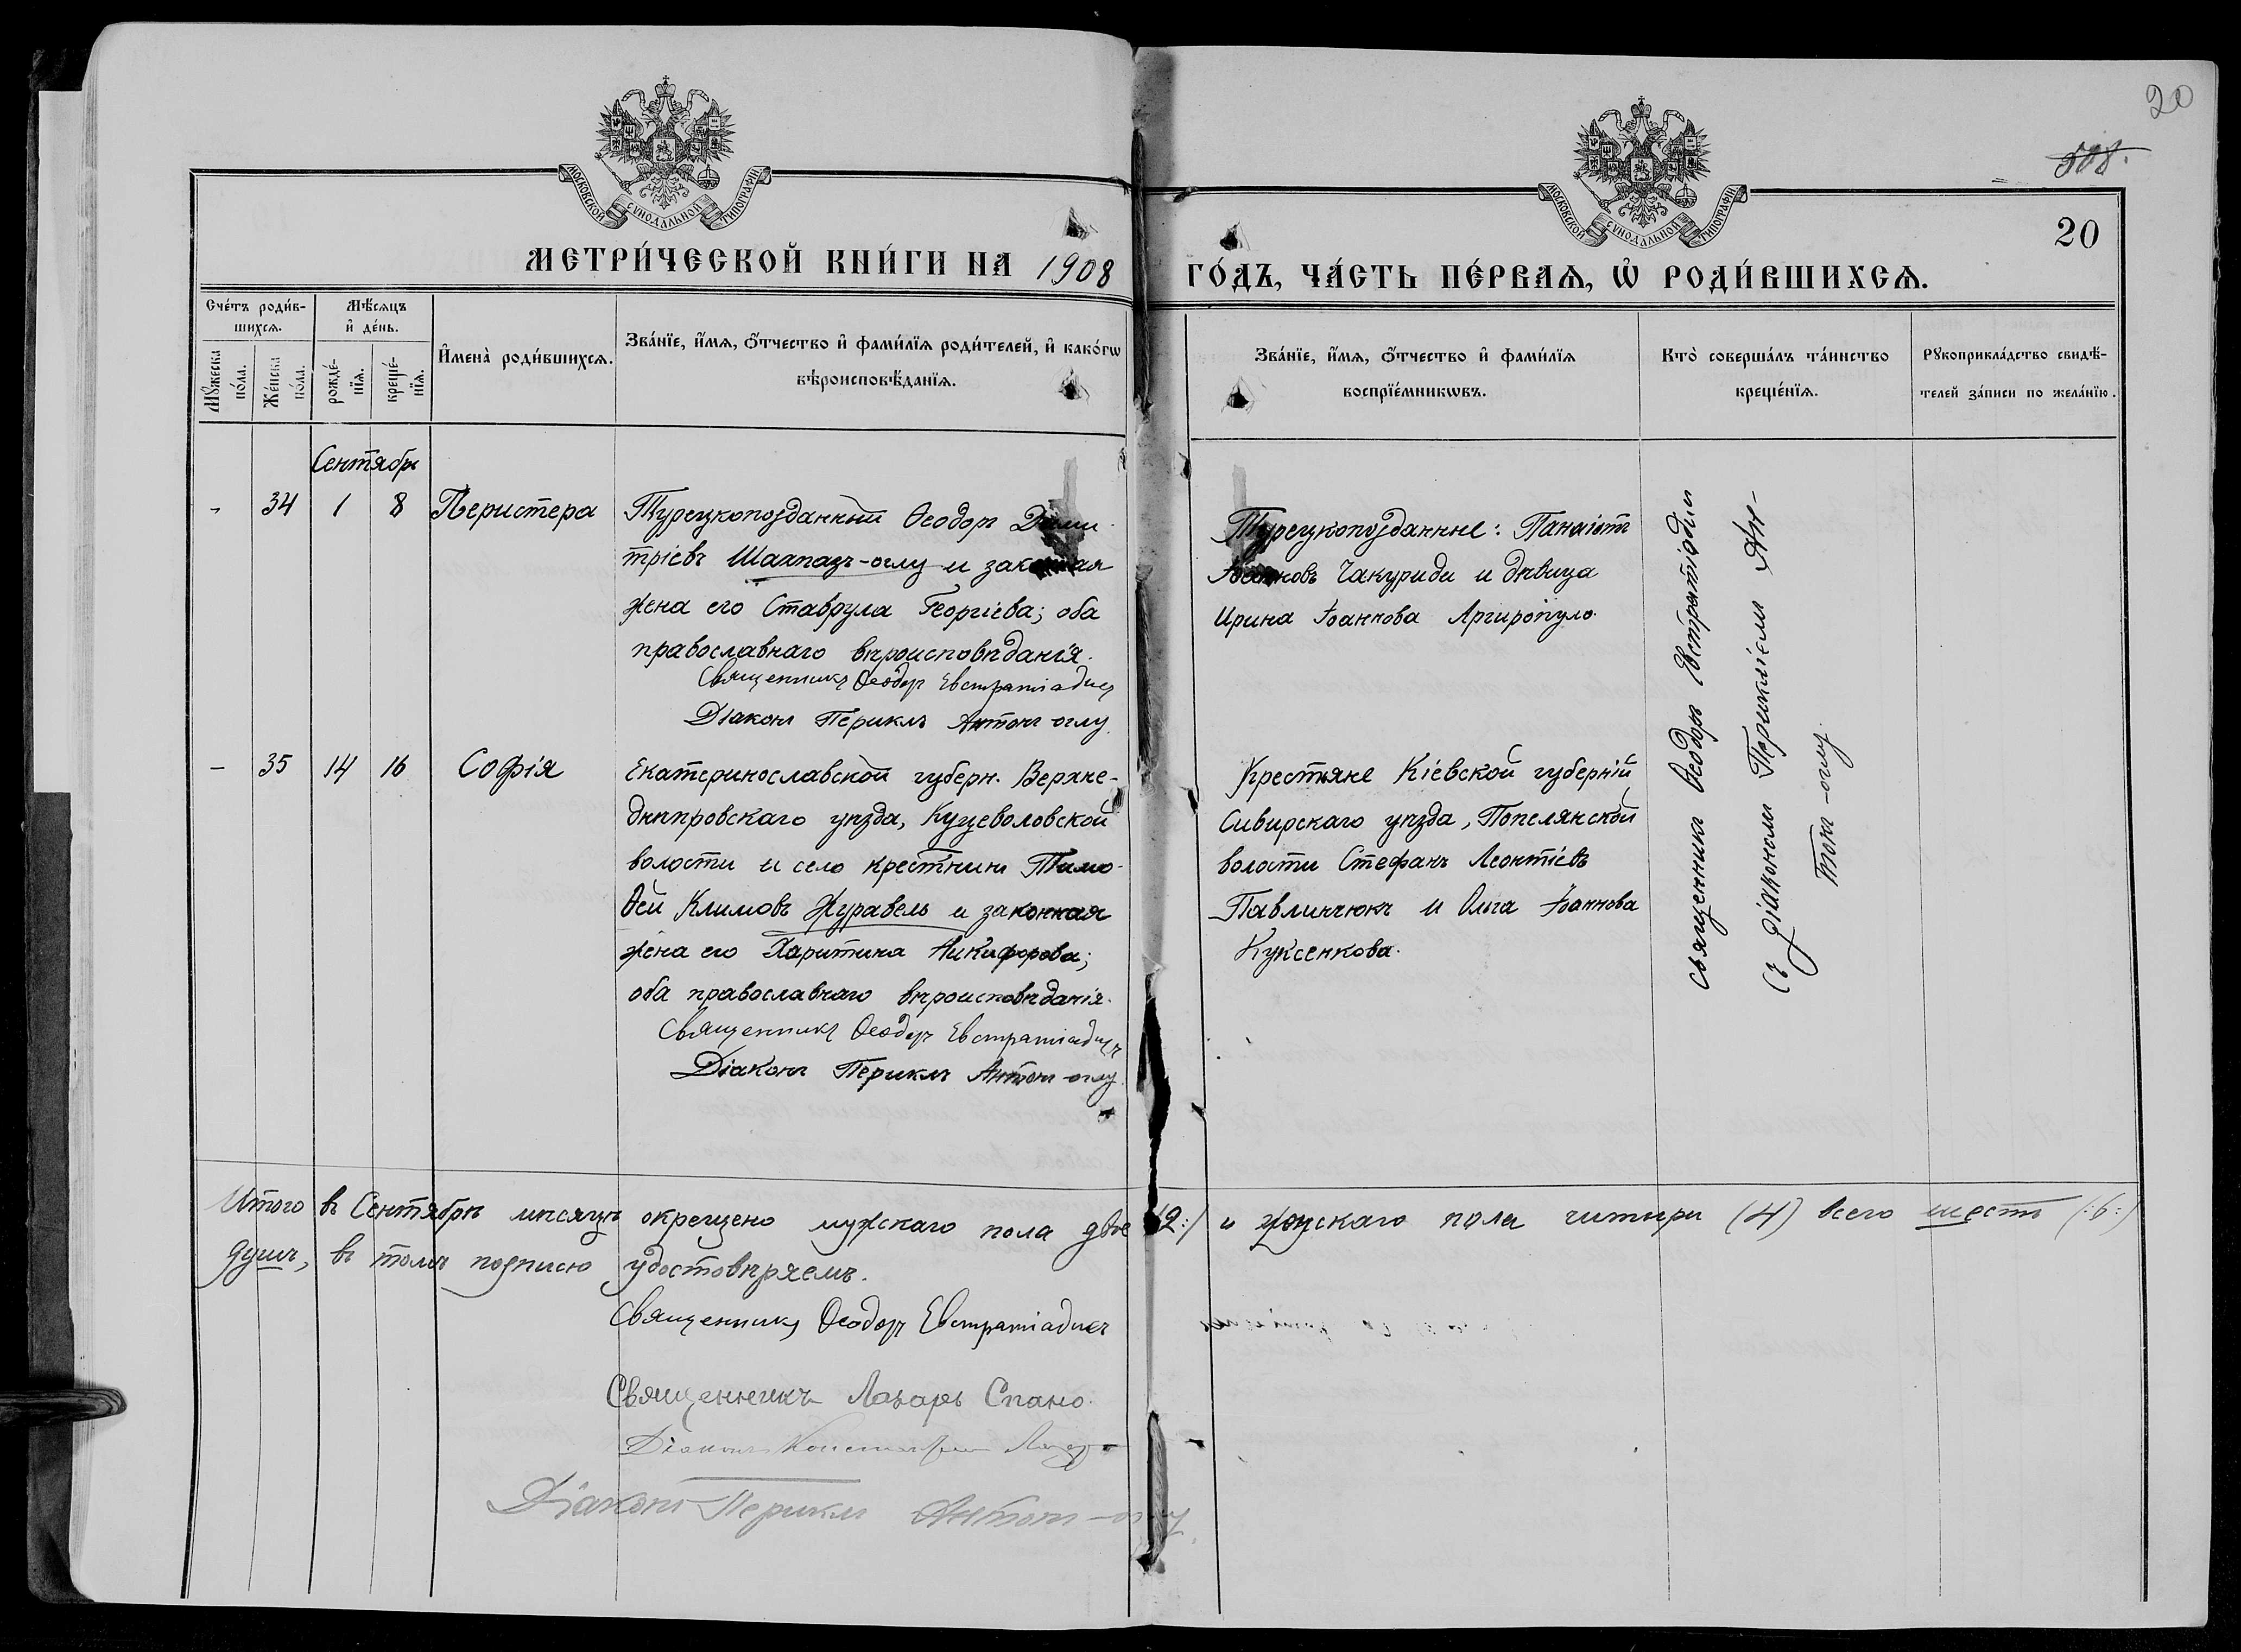 20
508.
20
МОСКОВСКОЙ СѴНОДАЛЬНОЙ ТИПОГРАФІИ
МОСКОВСКОЙ СѴНОДАЛЬНОЙ ТИПОГРАФІИ
МЕТРИ́ЧЕСКОЙ КНИ́ГИ НА 1908
ГО́ДЪ, ЧА́СТЬ ПЕ́РВАѦ, Ѡ҆ РОДИ́ВШИХСѦ.
Сче́тъ роди́в-
шихсѧ.
Мѣ́сѧцъ
и҆ де́нь.
Мꙋ́жеска
по́ла.
Же́нска
по́ла.
рожде́-
нїѧ.
креще́-
нїѧ.
И҆мена̀ роди́вшихсѧ.
Зва́нїе, и҆́мѧ, ѻ҆́тчество и҆ фами́лїѧ роди́телей, и҆ како́гѡ
вѣроисповѣ́данїѧ.
Зва́нїе, и҆́мѧ, ѻ҆́тчество и҆ фами́лїѧ
воспрїе́мникѡвъ.
Кто̀ соверша́лъ та́инство
креще́нїѧ.
Рꙋкоприкла́дство свидѣ́-
телей за́писи по жела́нїю.
Сентябрь
-
34
1
8
Перистера
Турецкоподданный Ѳеодоръ Дими-
тріевъ Шахпазъ-оглу и законная
жена его Ставрула Георгіева; оба
православнаго вѣроисповѣданія.
Священникъ Ѳеодоръ Евстратіадисъ
Діаконъ Периклъ Антонъ-оглу.
Турецкоподданные: Панаіотъ
Іоанновъ Чакуриди и дѣвица
Ирина Іоаннова Аргиропуло.
Священникъ Ѳеодоръ Евстратіадисъ
Съ Діакономъ Перикліемъ Ан-
тонъ-оглу.
-
35
14
16
Софія
Екатеринославской губерн. Верхне-
днѣпровскаго уѣзда, Куцеволовской
волости и село крестнинъ Тимо-
ѳей Климовъ Журавель и законная
жена его Харитина Никифорова;
оба православнаго вѣроисповѣданія.
Священникъ Ѳеодоръ Евстратіадисъ
Діаконъ Периклъ Антонъ-оглу.
Крестьяне Кіевской губерніи
Сивирскаго уѣзда, Попелянской
волости Стефанъ Леонтіевъ
Павлинчюкъ и Ольга Іоаннова
Куксенкова.
Итого въ Сентябрѣ мѣсяцѣ окрещено мужскаго пола двое 2:) и женскаго пола читыри (4) всего шесть (:6:)
душъ, въ томъ подписю удостовѣряемъ.
Священникъ Ѳеодоръ Евстратіадисъ
Священникъ Лазарь Спано.
Діаконъ
Діаконъ Периклъ Антонъ-оглу.